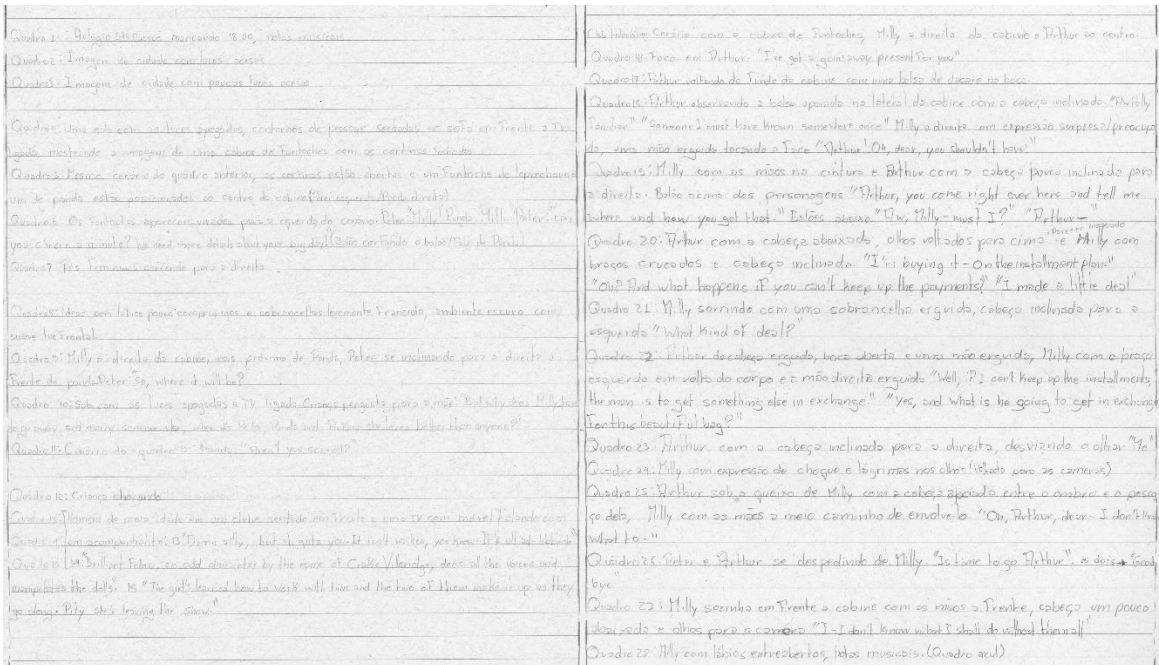 Quadro 1: Relógio marcando 18:00, notas musicais
Quadro 2: Imagem de cidade com luzes acesas
Quadro 3: Imagem de cidade com poucas luzes acesas
Quadro 4: Uma sala com as luzes apagadas, contornos de pessoas sentadas no sofá em frente a TV
ligada mostrando a imagem de uma cabine de fantoches com as cortinas fechadas
Quadro 5: Mesmo cenário do quadro anterior, as cortinas estão abertas e um fantoche de leprechaun e
um de panda estão posicionados ao centro da cabine (esquerda/Panda direita)
Quadro 6: Os fantoches aparecem virados para a esquerda do cenário. Peter "Milly! Panda Milly! Peter: "can
you c'mere a minute? We want more details about your big day!" (Balão cortando o balão/fala de Panda)
Quadro 7: Pés femininos correndo para a direita
Quadro 8: lábios pouco comprimidos e sobrancelhas levemente franzida, ambiente escuro com
suave luz frontal
Quadro 9: Milly à direita da cabine, mais próximo de Panda, Peter se inclinando para a direita à
frente de panda. Peter: "So, where it will be?
Quadro 10: Sala com as luzes apagadas e TV ligada. Criança pergunta para a mãe: "But why does Milly have
to go away, and marry someone, when it's Peter, Panda and she loves better than anyone?"
Quadro 11: Cenário do quadro 9. Panda: "Aren't you scared?"
Quadro 12: Criança chorando
Quadro 13: Homens de meia idade em um clube sentado em frente a uma TV com móvel falando com
Quadro 14 um acompanhante: 13 "Damn silly, but it gets you. It isn't written, you know. It's all ad-libbed"
Quadro 15 14 "Brilliant Peter, an odd character by the name of Crake Villeridge, does all the voices and
manipulates the dolls". 15 "The girl's learned how to work with him and the two of them make it up as they
go along. Pity she's leaving the show."
Cenário com a cabine de fantoches, Milly a direita da cabine e Arthur ao centro
Quadro 16: Foco em Arthur: "I've got a goin'away present for you"
Quadro 17: Arthur voltando do fundo da cabine com uma bolsa de jacaré na boca
Quadro 18: Arthur observando a bolsa apoiada na lateral da cabine com a cabeça inclinada.
familiar" "Someone I must have known somewhere once" Milly a direita em expressão surpresa/preocupa
da, uma mão erguida tocando a face "Arthur! Oh, dear, you shouldn't have!"
Quadro 19: Milly com as mãos na cintura e Arthur com a cabeça pouco inclinado para
a direita. Balão acima dos personagens "Arthur, you come right over here and tell me
where and how you got that." Balões abaixo "Aw, Milly - must I?" "Arthur -"
Quadro 20: Arthur com a cabeça abaixada, olhos voltados para cima e Milly com
braços cruzados e cabeça inclinada "I'm buying it - On the installment plan"
"Oh? And what happens if you can't keep up the payments?" "I made a little deal"
Quadro 21: Milly sorrindo com uma sobrancelha erguida, cabeça inclinada para a
esquerda "What kind of deal?"
Quadro 22: Arthur de cabeça erguida, boca aberta e uma mão erguida, Milly com o braço
esquerdo em volta do corpo e a mão direita erguida "Well, if I can't keep up the installments,
the man is to get something else in exchange." "Yes, and what is he going to get in exchange
for this beautiful bag?"
Quadro 23: Arthur com a cabeça inclinada para a direita, desviando o olhar "Me"
Quadro 24: Milly com expressão de choque e lágrimas nos olhos (virada para as cameras)
Quadro 25: Arthur sob o queixo de Milly com a cabeça apoiada entre o ombro e o pesco
ço dela, Milly com as mãos a meio caminho de envolve-lo "Oh, Arthur, dear - I don't know
what to -"
Quadro 26: Peter e Arthur se despedindo de Milly "Is time to go Arthur". os dois → "Good
bye"
Quadro 27: Milly sozinha em frente a cabine com as mãos a frente, cabeça um pouco
abaixada e olhos para a camera "I - I don't know what I shall do without them all"
Quadro 28: Milly com lábios entreabertos, notas musicais. (Quadro azul)